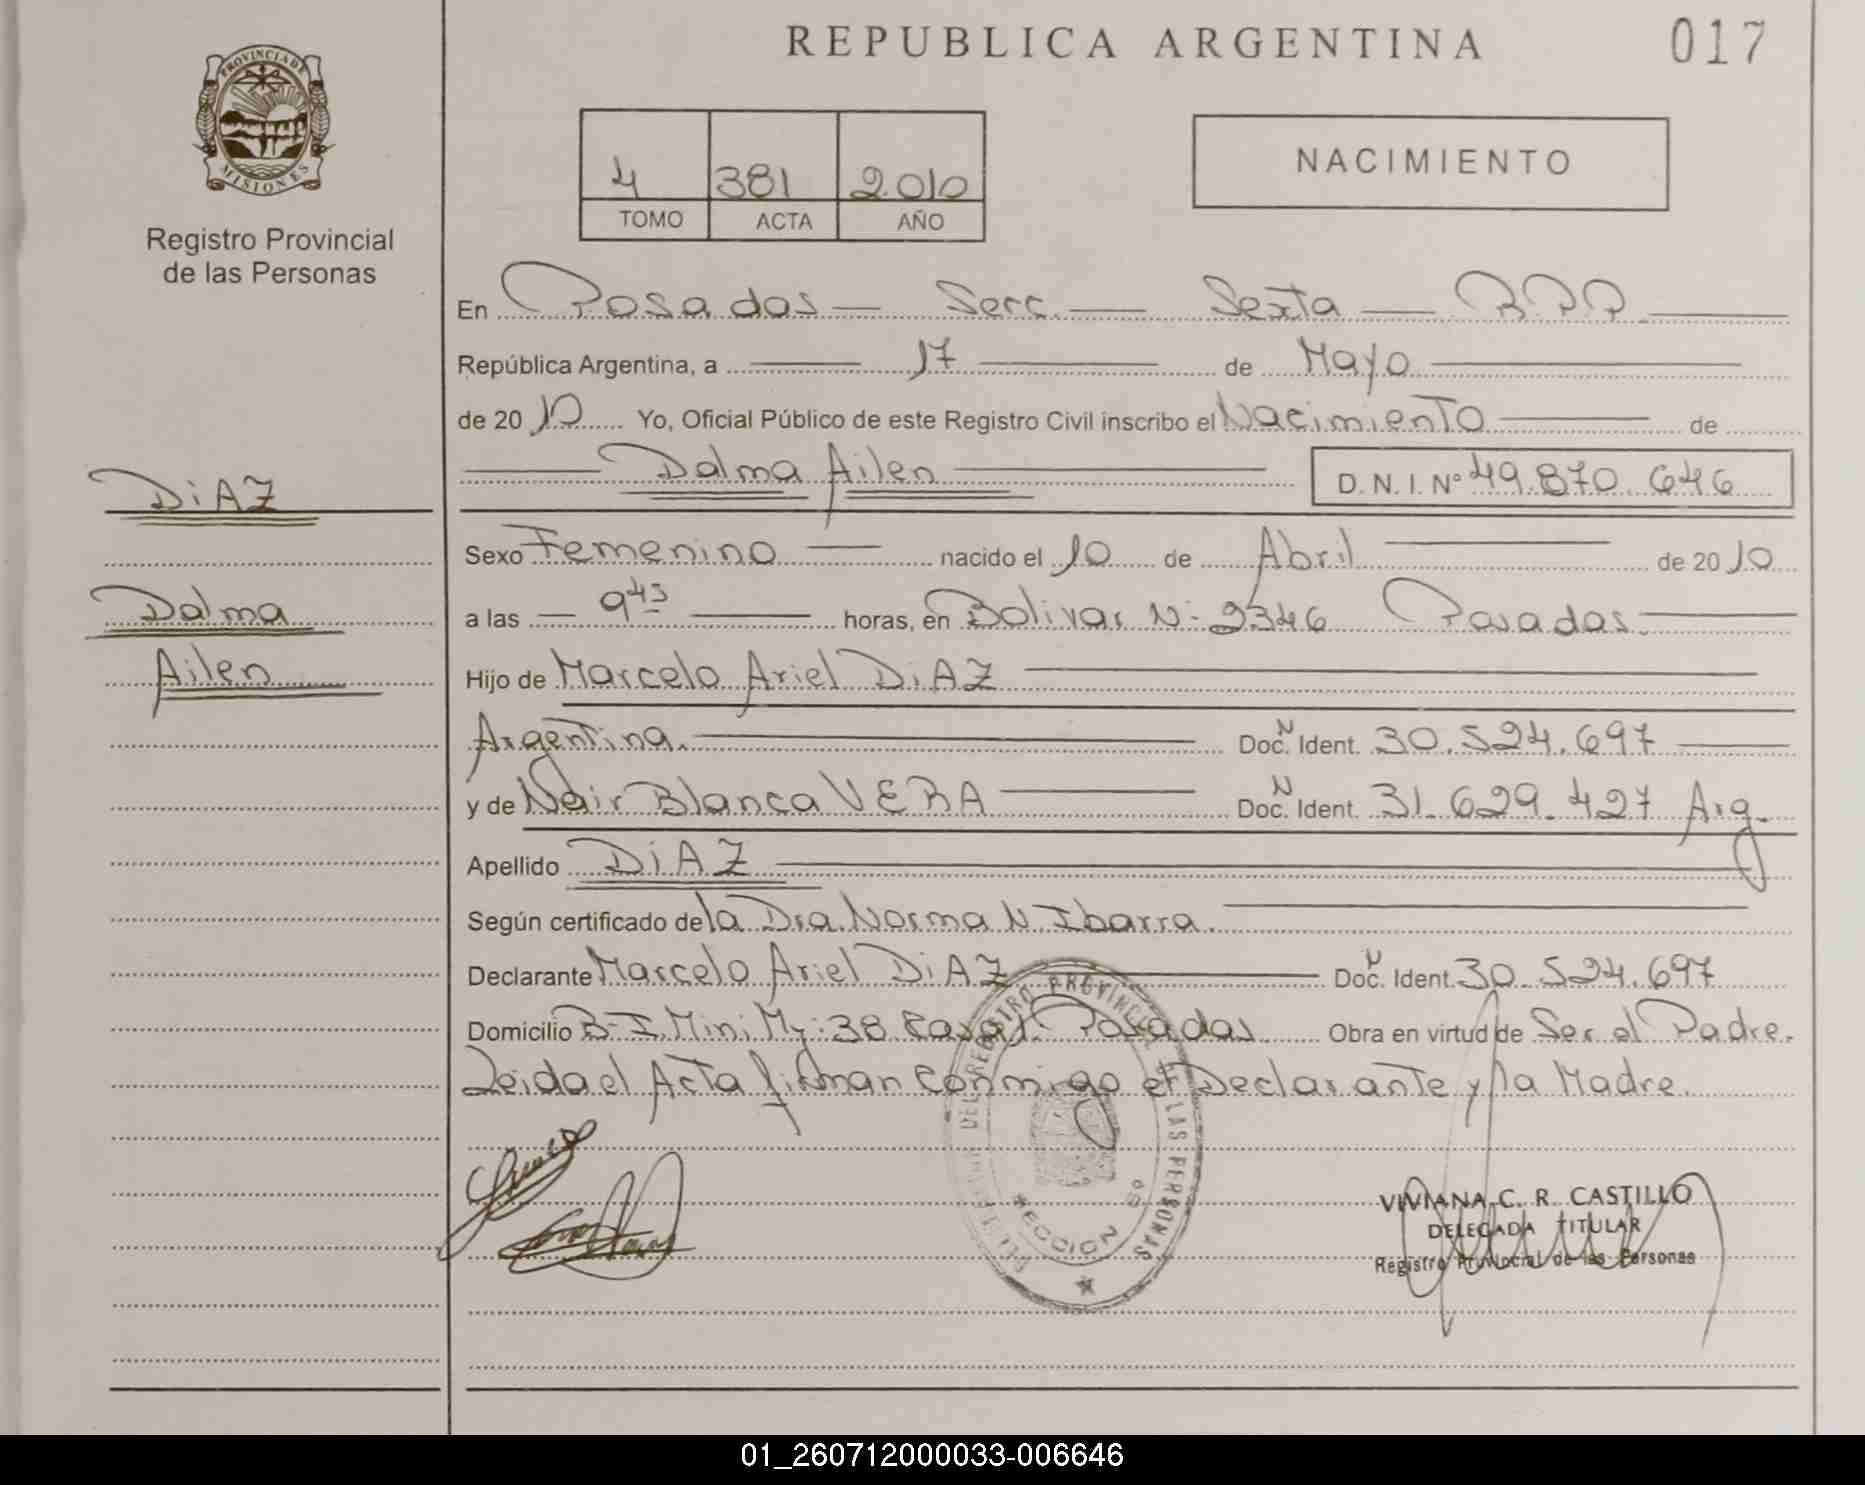 REPUBLICA ARGENTINA
017
PROVINCIA DE
MISIONES
Registro Provincial
de las Personas
4 381 2010
TOMO ACTA AÑO
NACIMIENTO
En Posadas — Secc. — Sexta — R.P.P.
República Argentina, a — 17 — de Mayo
de 2010 Yo, Oficial Público de este Registro Civil inscribo el Nacimiento — de
Dalma Ailen — D. N. I. N° 49.870.646
DiAZ
Dalma
Ailen
Sexo Femenino — nacido el 10 de Abril — de 2010
a las — 9 45 — horas, en Bolivar N- 2346 Posadas.
Hijo de Marcelo Ariel DiAZ
Argentina. — Doc. N Ident. 30.524.697
y de Nair Blanca VERA — Doc. N Ident. 31.629.427 Arg.
Apellido DiAZ
Según certificado de la Dra. Norma N. Ibarra.
Declarante Marcelo Ariel DiAZ — Doc. N Ident. 30.524.697
Domicilio B- I. Mini. Mz: 38 Casa Posadas. Obra en virtud de Ser el Padre.
Leida el Acta firman conmigo el Declarante y la Madre.
DEL REGISTRO PROVINCIAL DE LAS PERSONAS
SECCION 6°
VIVIANA C. R. CASTILLO
DELEGADA TITULAR
Registro Provincial de las Personas
01_260712000033-006646